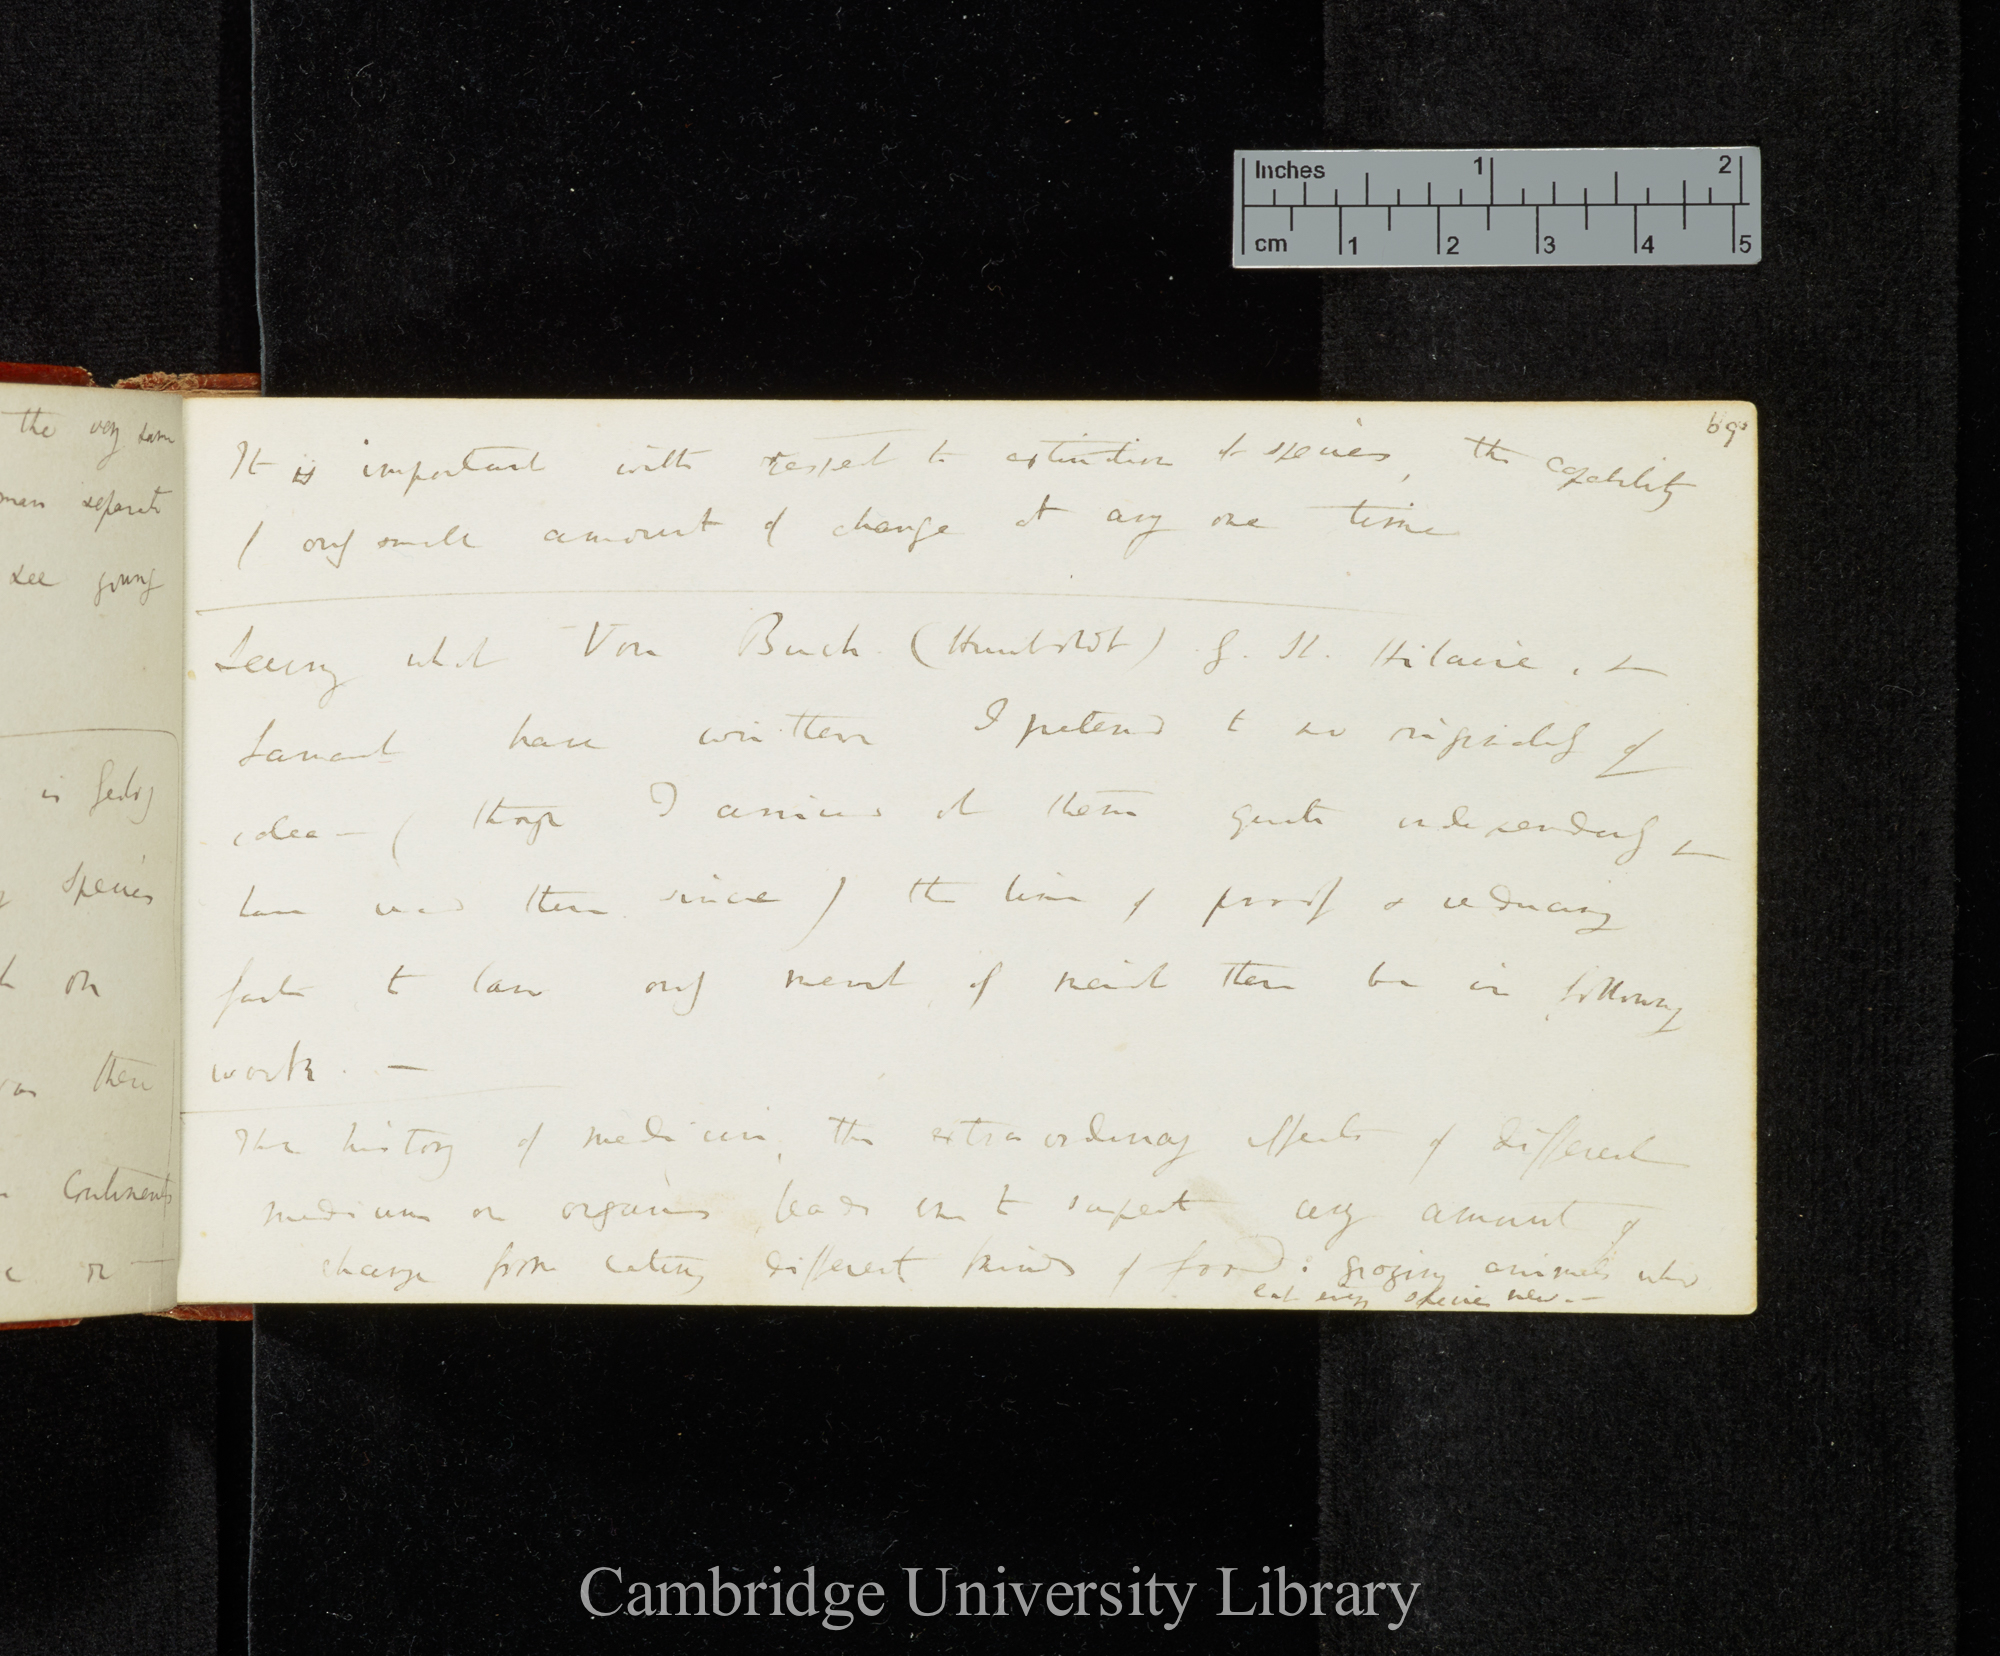 the very same
men separate
see young
in Geolog
Species
on
then
Continents
or —
69
It is important with respect to extinction of species, the capability
of only small amount of change at any one time
Seeing what Von Buch (Humboldt) G. St. Hilaire, &
Lamarck have written I pretend to no originality of
idea — (though I arrived at them quite independently &
have read them since) the line of proof & reducing
facts to law only merit if merit there be in following
work. —
The history of medicine, the extraordinary effects of different
mediums on organs leads one to suspect any amount of
change from eating different kinds of food: grazing animals who
eat every species new. —
Inches 1 2
cm 1 2 3 4 5
Cambridge University Library